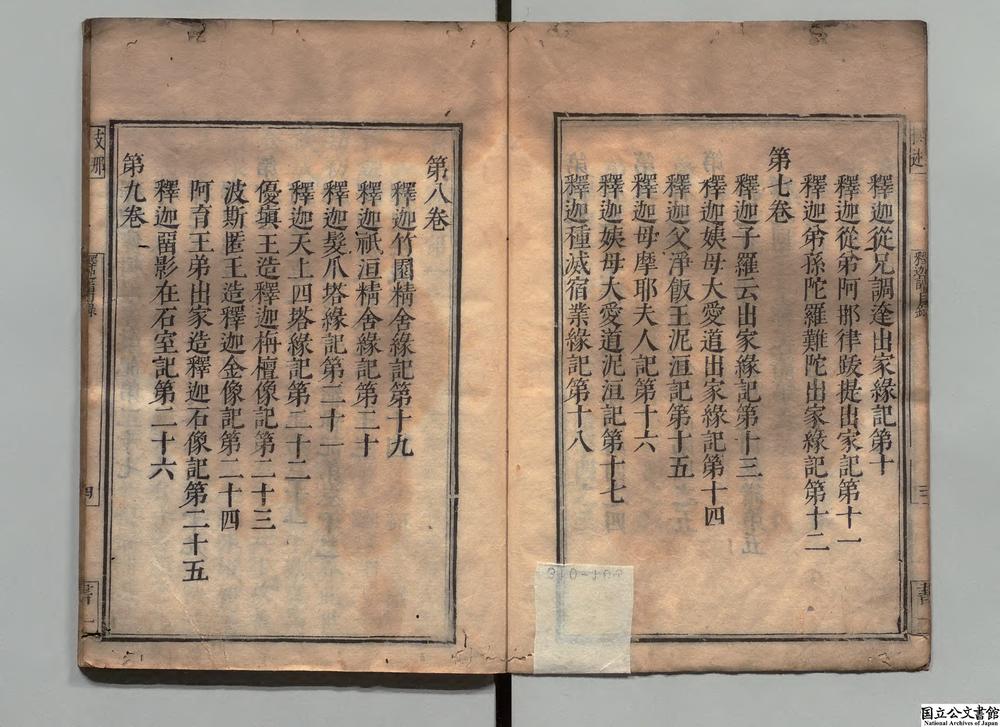 釋迦從兄調達出家緣記第十
釋迦從弟阿那律跋提出家記第十一
釋迦弟孫陀羅難陀出家緣記第十二
第七卷
釋迦子羅云出家緣記第十三
釋迦姨母大愛道出家緣記第十四
釋迦父淨飯王泥洹記第十五
釋迦母摩耶夫人記第十六
釋迦姨母大愛道泥洹記第十七
釋迦種滅宿業緣記第十八
第八卷
釋迦竹園精舍緣記第十九
釋迦祇洹精舍緣記第二十
釋迦髮爪塔緣記第二十一
釋迦天上四塔緣記第二十二
優塡王造釋迦栴檀像記第二十三
波斯匿王造釋迦金像記第二十四
阿育王弟出家造釋迦石像記第二十五
釋迦畱影在石室記第二十六
第九卷
支那
四
書一
国立公文書館
National Archives of Japan